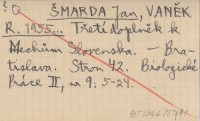 ? O ŠMARDA Jan, VANĚK
R. 1955... Třetí doplněk k
Mechům Slovenska. – Bra-
tislava. Stron 42. Biologické
Práce II, nr 9: 5-24.